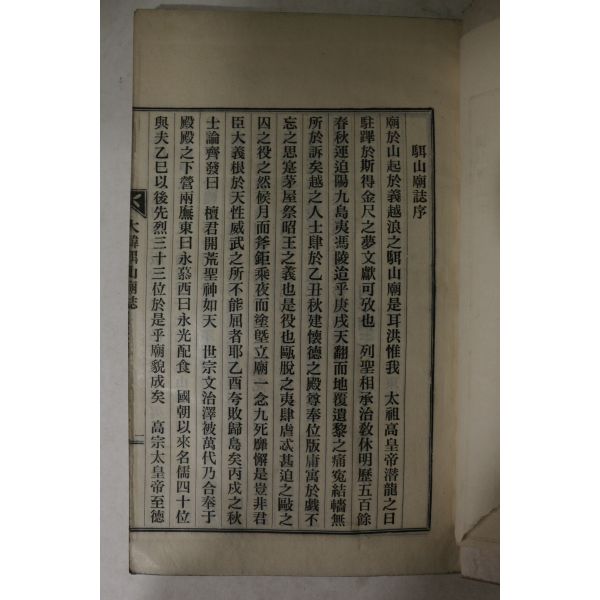 駬山廟誌序
廟於山起於義越浪之駬山廟是耳洪惟我 太祖高皇帝潛龍之日
駐蹕於斯得金尺之夢文獻可攷也 列聖相承治敎休明歷五百餘
春秋運迫陽九島夷馮陵迨乎庚戌天翻而地覆遺黎之痛寃結轖無
所於訴矣越之人士肆於乙丑秋建懷德之殿尊奉位版庸寓於戲不
忘之思寔茅屋祭昭王之義也是役也甌脫之夷肆虐忒甚迫之敺之
囚之役之然候月而斧鉅乘夜而塗墍立廟一念九死靡懈是豈非君
臣大義根於天性威武之所不能屈者耶乙酉夸敗歸島矣丙戌之秋
士論齊發曰 檀君開荒聖神如天 世宗文治澤被萬代乃合奉于
殿殿之下營兩廡東曰永慕西曰永光配食 國朝以來名儒四十位
與夫乙巳以後先烈三十三位於是乎廟貌成矣 高宗太皇帝至德
大韓駬山廟誌